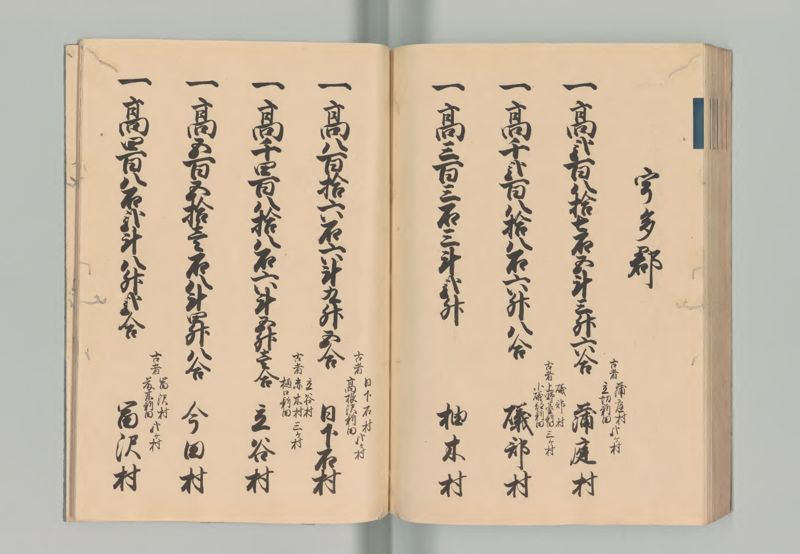 宇多郡
一高弐百八拾七石五斗三升六合
古者 蒲庭村
立切新田 弐ヶ村
蒲庭村
一高千弐百八拾八石六升八合
古者 磯部村
上野菅新田 三ヶ村
小磯部新田
磯部村
一高三百三石三斗弐升
柚木村
一高八百拾六石六斗九升五合
古者 日下石村 弐ヶ村
高根沢新田
日下石村
一高千四百八拾八石六斗五升壱合
古者 立谷村
赤木村 三ヶ村
樋口新田
立谷村
一高五百五拾壱石八斗四升八合
今田村
一高四百八石弐斗八升弐合
古者 冨沢村 弐ヶ村
新田
冨沢村